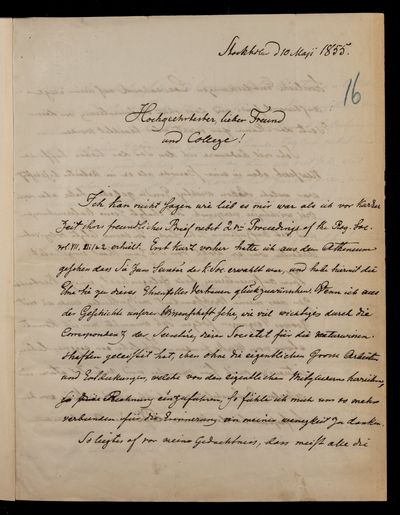 Stockholm d 10 Maji 1855.
16
Hochgeehrtester, lieber Freund
und College!
Ich kan nicht sagen wie lieb es mir war als ich vor kurzer
Zeit ihre freundliches Brief nebst 2 Proceedings of the Roy. Soc.
vol VII. erhielt. Erst kurz vorher hatte ich aus dem Atheneum
gesehen dass Sie zum Secretar des R. Soc erwählt war, und habe hiermit die
Ehre Sie zu dieses Ehrenvolles Vertrauen glückzuwünschen. Wenn ich aus
der Geschichte unserer Wissenschaft sehe, wie viel wichtiges durch die
Correspondenz der Secretäre, dieser Societet für die naturwissen-
shaften geleistet hat, eben ohne die eigentlichen Grosse Arbeiten
und Entdeckungen, welche von den eigentlichen Mitgliedern herreichen,
in Rechnung einzuführen, so fühle ich mich um so mehr
verbunden für die Erinnerung an meine wenigkeit zu danken.
So liegt es vor meine Gedachtness, dass meist alle die